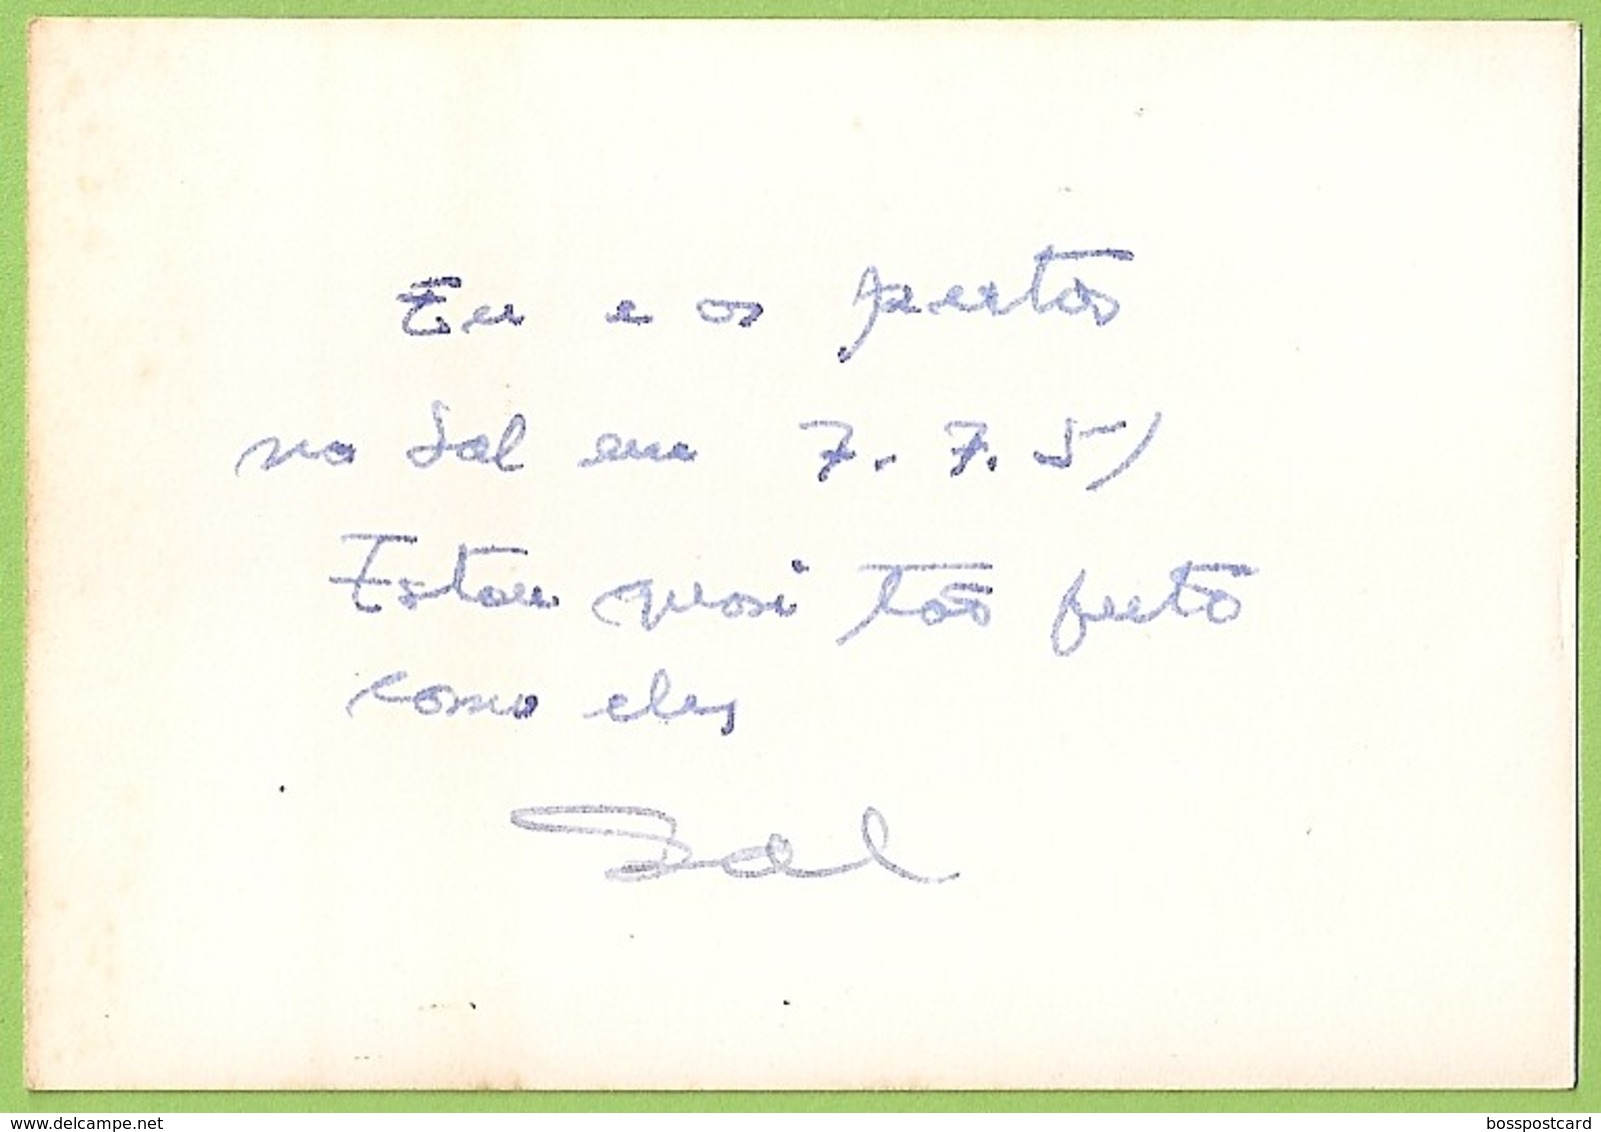 Eu e os pretos
no Sal em 7.7.51
Estou quasi tão preto
como eles
Sal
delcampe.net
bosspostcard